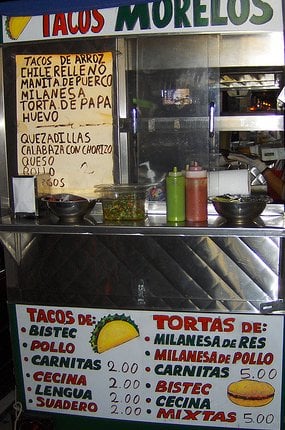 TACOS MORELOS
TACOS DE ARROZ
CHILE RELLENO
MANITA DE PUERCO
MILANESA
TORTA DE PAPA
HUEVO
QUEZADILLAS
CALABAZA CON CHORIZO
QUESO
POLLO
TACOS DE:
• BISTEC
• POLLO
• CARNITAS 2.00
• CECINA 2.00
• LENGUA 2.00
• SUADERO 2.00
TORTAS DE:
• MILANESA DE RES
• MILANESA DE POLLO
• CARNITAS 5.00
• BISTEC
• CECINA
• MIXTAS 5.00